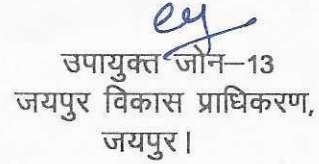 उपायुक्त जोन–13
जयपुर विकास प्राधिकरण,
जयपुर।